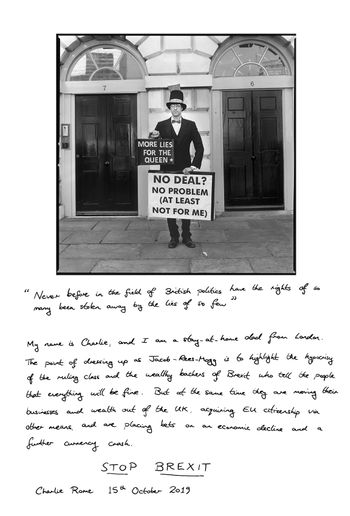 7
6
MORE LIES
FOR THE
QUEEN
NO DEAL?
NO PROBLEM
(AT LEAST
NOT FOR ME)
"Never before in the field of British politics have the rights of so
many been stolen away by the lies of so few"
My name is Charlie, and I am a stay-at-home dad from London.
The point of dressing up as Jacob-Rees-Mogg is to highlight the hypocrisy
of the ruling class and the wealthy backers of Brexit who tell the people
that everything will be fine. But at the same time they are moving their
businesses and wealth out of the UK, acquiring EU citizenship via
other means, and are placing bets on an economic decline and a
further currency crash.
STOP BREXIT
Charlie Rome 15th October 2019